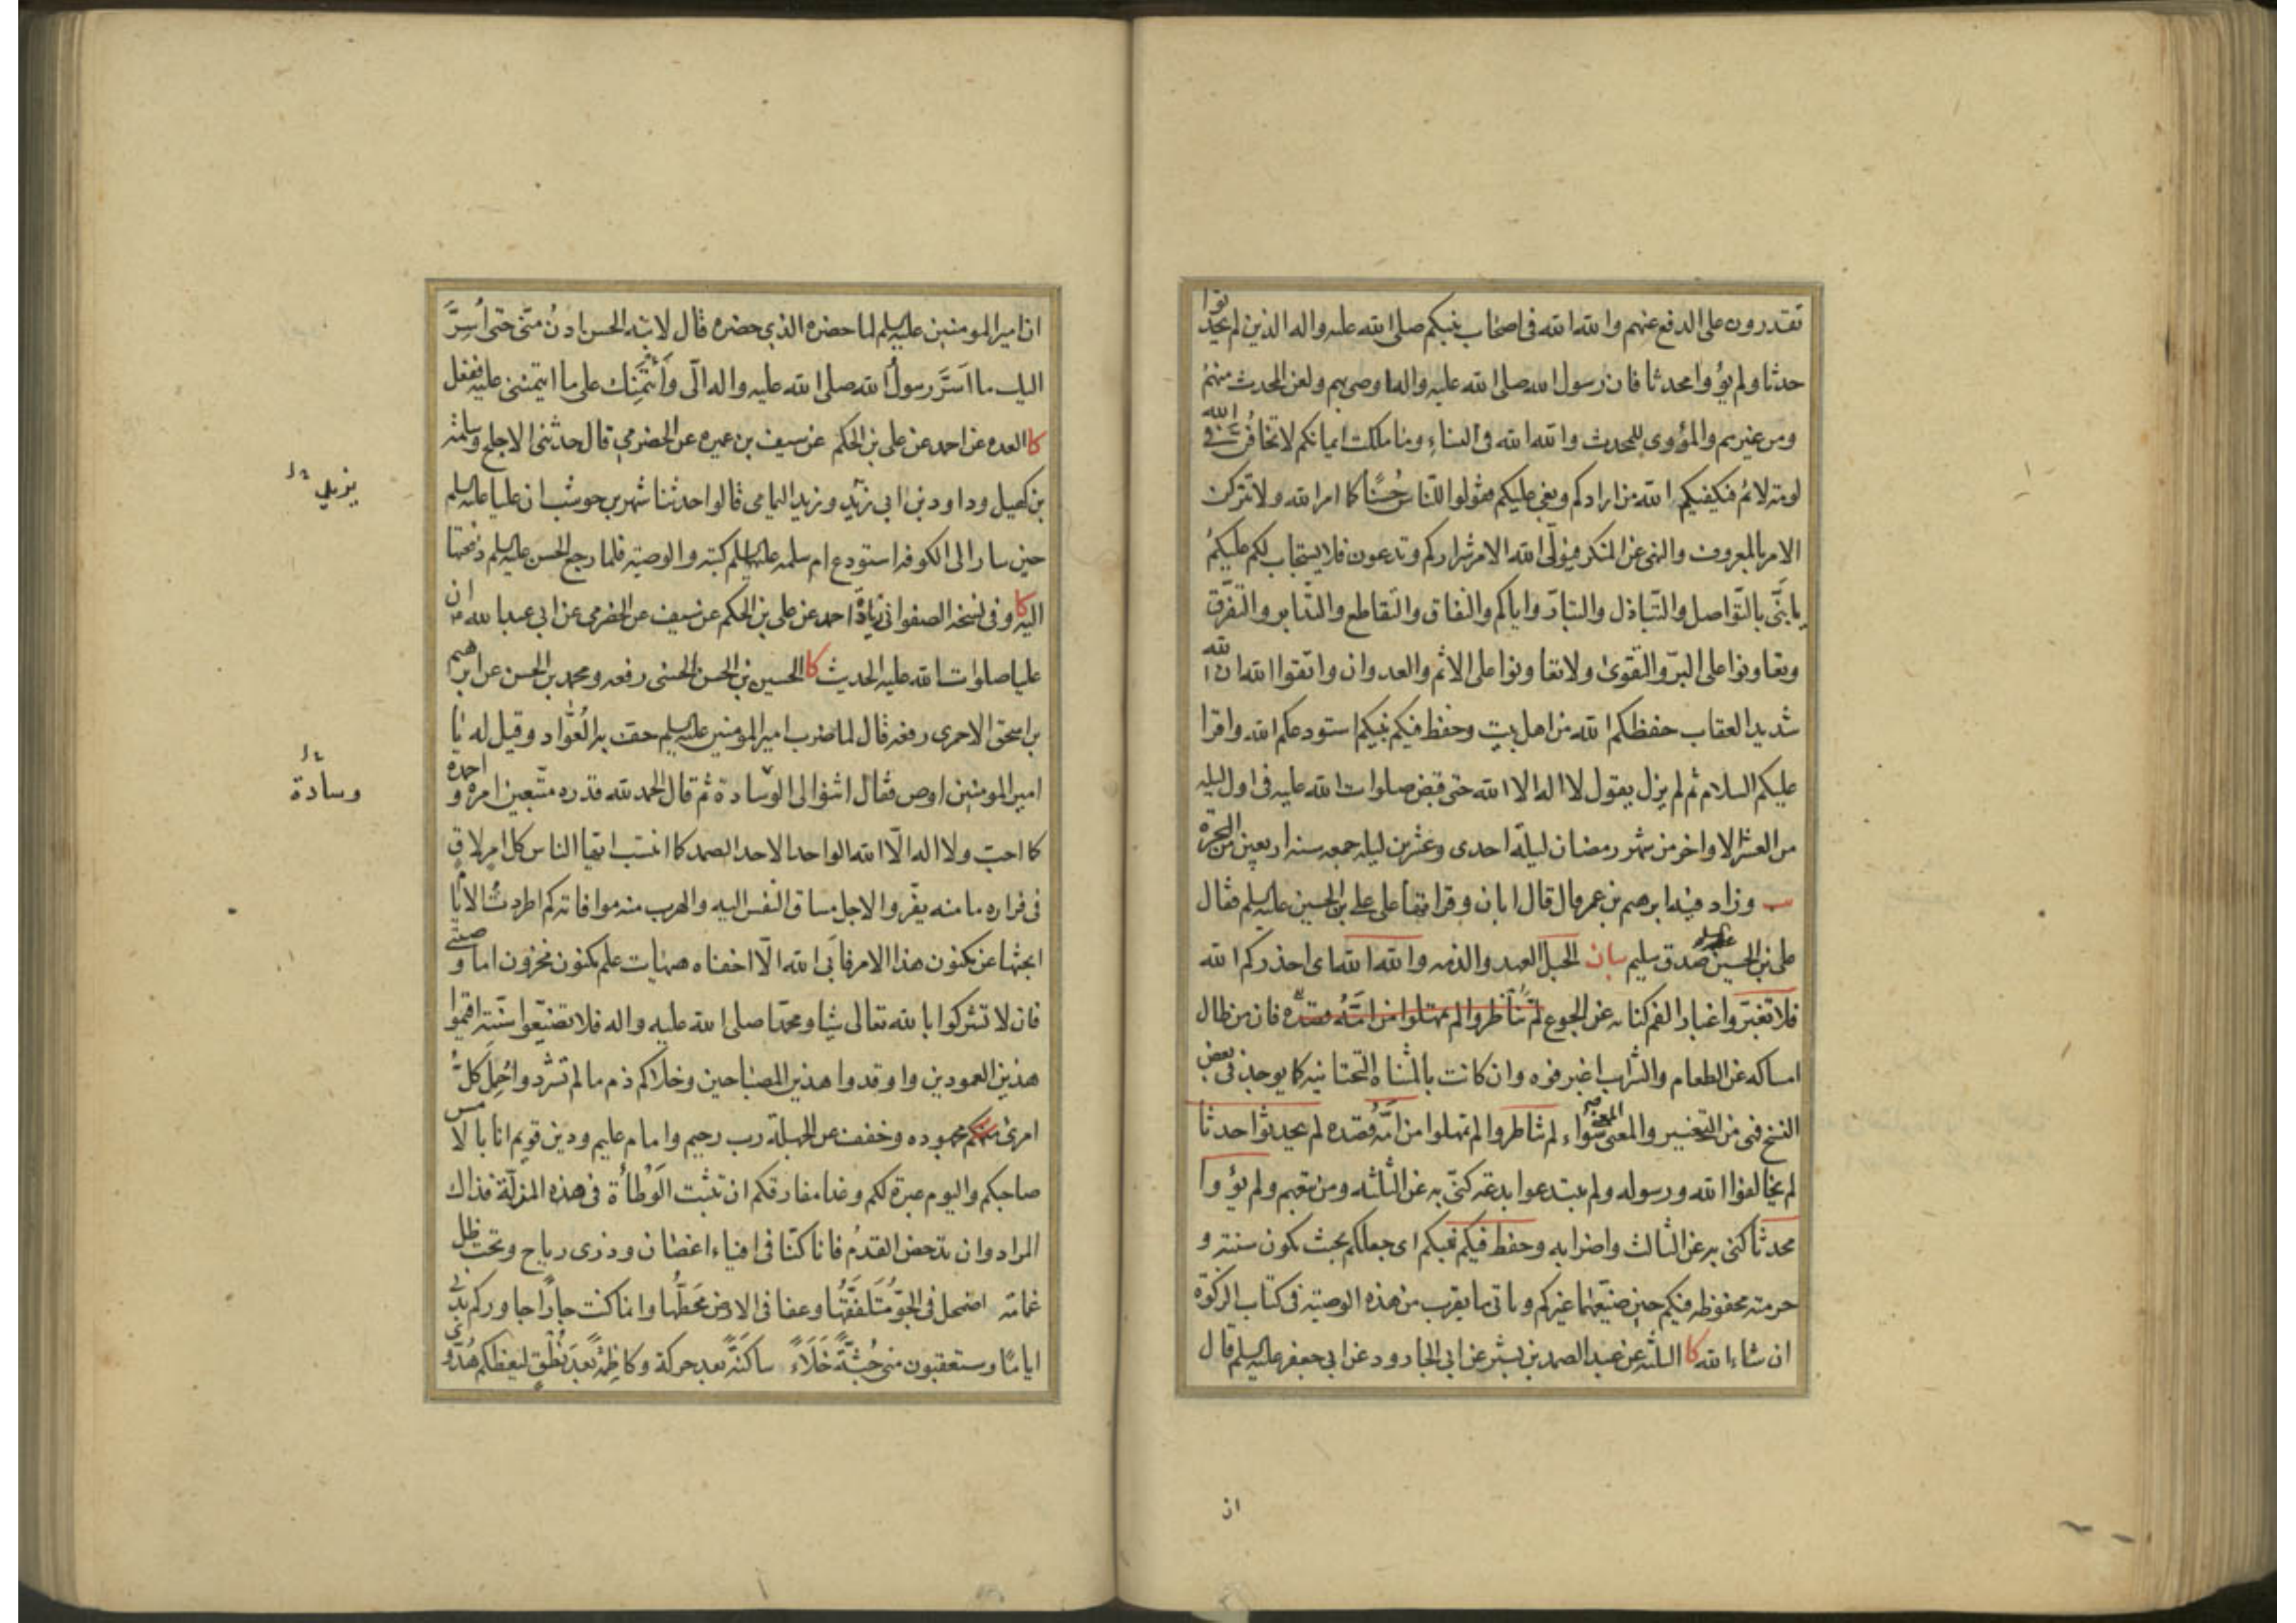 تقدرون على الدفع عنهم والله الله فى اصحاب نبيكم صلى الله عليه واله الذين لم يحدثوا
حدثا ولم يؤوا محدثا فان رسول الله صلى الله عليه واله اوصى بهم ولعن المحدث منهم
ومن غيرهم والمؤوى للمحدث والله الله فى النساء وما ملكت ايمانكم لا تخافن فى الله
لومة لائم فيكفيكم الله من ارادكم وبغى عليكم قولوا للناس حُسنًا كما امر الله ولا تتركن
الامر بالمعروف والنهى عن المنكر فيولّى الله الامر شراركم وتدعون فلا يستجاب لكم عليكم
يا بنىّ بالتّواصل والتّباذل والتبادّ واياكم والنفاق والتقاطع والتدابر والتفرّق
وتعاونوا على البرّ والتّقوى ولا تعاونوا على الاثم والعدوان واتقوا الله ان الله
شديد العقاب حفظكم الله من اهل بيت وحفظ فيكم نبيكم استودعكم الله واقرا
عليكم السلام ثم لم يزل يقول لا اله الا الله حتى قبض صلوات الله عليه فى اول ليله
من العشر الاواخر من شهر رمضان ليلة احدى وعشرين ليله جمعه سنه اربعين من الهجرة
يب وزاد فيه ابرهيم بن عمر قال قال ابان وقراتها على على بن الحسين عليه السلم فقال
على بن الحسين عليه السلم صدق سليم بيان الحبل العهد والذمه والله الله اى احذركم الله
فلا تغبّروا اغبار الفم كنايه عن الجوع لم تناظروا لم تمهلوا من امّه قصده فان من طال
امساكه عن الطعام والشراب اغبر فوه وان كانت بالمثناه التحتانيه كما يوجد فى بعض
النسخ فهى من التغيير والمعنى سواء لم تناظروا لم تمهلوا من امّه قصده لم يحدثوا حدثا
لم يخالفوا الله ورسوله ولم يبتدعوا بدعه كنّى به عن الثلثه ومن تبعهم ولم يؤوا
محدثا كنى به عن الثالث واضرابه وحفظ فيكم نبيكم اى جعلكم بحيث يكون سنته و
حرمته محفوظه فيكم حين ضيّعها غيركم وياتى ما يقرب من هذه الوصيّة فى كتاب الزكوة
ان شاء الله كا الثلثه عن عبد الصمد بن بشير عن ابى الجارود عن ابى جعفر عليه السلم قال
ان
ان امير المومنين عليه السلم لما حضره الذي حضره قال لابنه الحسن ادنُ منّى حتى اُسِرَّ
اليك ما اَسَرَّ رسولُ الله صلى الله عليه واله الىّ وأئتمنك على ما ائتمننى عليه ففعل
كا العده عن احمد عن على بن الحكم عن سيف بن عميره عن الحضرمي قال حدثنى الاجلح وسلمة
بن كهيل وداود بن ابى زيد وزيد اليمامى قالوا حدثنا شهر بن حوشب ان عليا عليه السلم
حين سار الى الكوفه استودع ام سلمه عليها السلم كتبه والوصيّة فلما رجع الحسن عليه السلم دفعتها
اليه كا وفى نسخة الصفوانى زيادة احمد عن على بن الحكم عن سيف عن الحضرمى عن ابى عبد الله ان
عليا صلوات الله عليه الحديث كا الحسين بن الحسن الحسنى رفعه ومحمد بن الحسن عن ابرهيم
بن اسحق الاحمرى رفعه قال لما ضرب امير المومنين عليه السلم حف به العُوّاد وقيل له يا
امير المومنين اوص فقال اثنوا لى الوسادة ثم قال الحمد لله قدره متّبعين امره واحمده
كما احبّ ولا اله الّا الله الواحد الاحد الصمد كما انتسب ايّها الناس كل امرء لاقٍ
فى فراره ما منه يفرّ والاجل مساق النّفس اليه والهرب منه موافاته كم اطردتُ الايام
ابحثها عن مكنون هذا الامر فابَى الله الّا اخفاه هيهات علم مكنون مخزون اما وصيّتى
فان لا تشركوا بالله تعالى شيا ومحمّدا صلى الله عليه واله فلا تضيّعوا سنّته اقيموا
هذين العمودين واوقدوا هذين المصباحين وخلاكم ذم ما لم تشرّدوا حُمِلَ كلُّ
امرئ مجهوده وخفف عن الجهلة رب رحيم وامام عليم ودين قويم انا بالامس
صاحبكم واليوم عبرة لكم وغدا مفارقكم ان تثبت الوَطْأَة فى هذه المزلّة فذاك
المراد وان تدحض القدمُ فانا كنّا فى افياء اغصان وذرى رياح وتحت ظلّ
غمامة اضمحل فى الجوّ مُتَلَفَّقُها وعفا فى الارض مَحَطُّها وانما كنت جارًا جاوركم بدنى
اياما وستعقبون منى جُثَّةً خَلَاءً ساكنةً بعد حركة وكاظِمَةً بَعدَ نُطْقٍ ليعظكم هُدُوّى
يزيد
وسادة